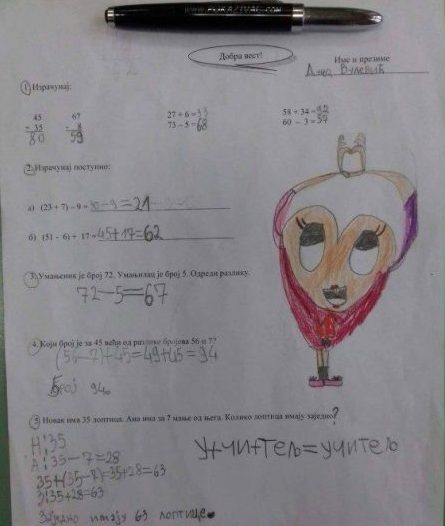 Добра вест!
Име и презиме
① Израчунај:
45 67 27 + 6 = 33 58 + 34 = 92
+ 35 - 8 73 – 5 = 68 60 – 3 = 57
80 59
2. Израчунај поступно:
а) (23 + 7) – 9 = 30-9=21
б) (51 - 6) + 17 = 45+17=62
3. Умањеник је број 72. Умањилац је број 5. Одреди разлику.
72-5=67
4. Који број је за 45 већи од разлике бројева 56 и 7?
(56-7)+45=49+45=94
Број 94.
5. Новак има 35 лоптица. Ана има за 7 мање од њега. Колико лоптица имају заједно?
Н:35
А:35-7=28
35+(35-7)=35+28=63
З:35+28=63
Заједно имају 63 лоптице.
У+ЧИ+ТЕЉ=УЧИТЕЉ